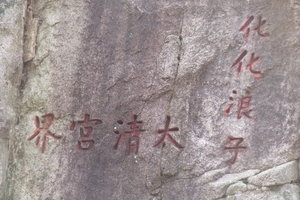 化化浪子
太清宫界